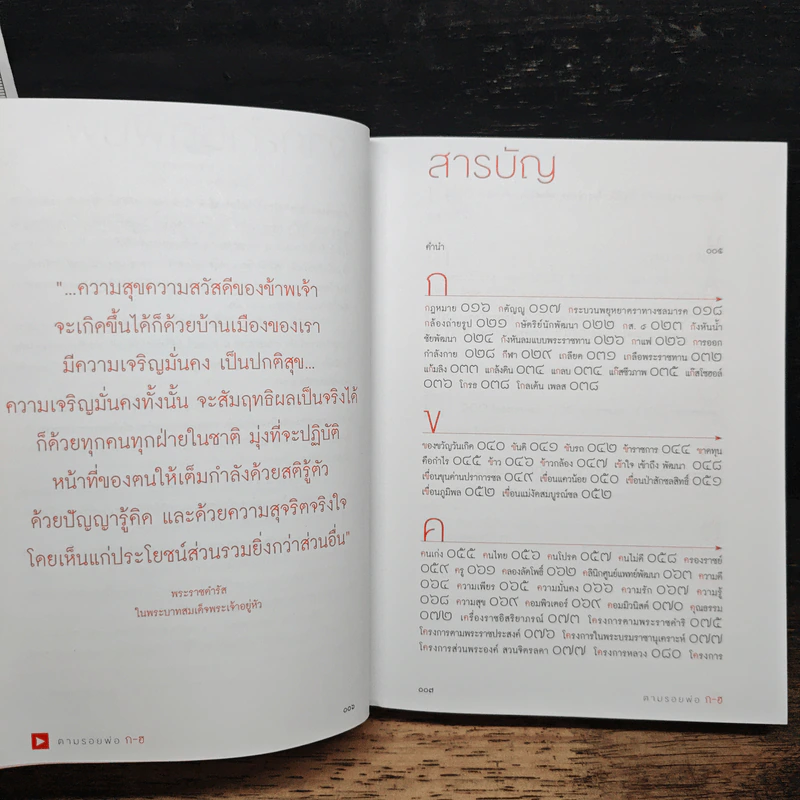 "...ความสุขความสวัสดีของข้าพเจ้า
จะเกิดขึ้นได้ก็ด้วยบ้านเมืองของเรา
มีความเจริญมั่นคง เป็นปกติสุข...
ความเจริญมั่นคงทั้งนั้น จะสัมฤทธิผลเป็นจริงได้
ก็ด้วยทุกคนทุกฝ่ายในชาติ มุ่งที่จะปฏิบัติ
หน้าที่ของตนให้เต็มกำลังด้วยสติรู้ตัว
ด้วยปัญญารู้คิด และด้วยความสุจริตจริงใจ
โดยเห็นแก่ประโยชน์ส่วนรวมยิ่งกว่าส่วนอื่น"
พระราชดำรัส
ในพระบาทสมเด็จพระเจ้าอยู่หัว
๐๐๖
ตามรอยพ่อ ก-ฮ
สารบัญ
คำนำ ๐๐๕
ก
กฎหมาย ๐๑๖ กตัญญู ๐๑๗ กระบวนพยุหยาตราทางชลมารค ๐๑๘
กล้องถ่ายรูป ๐๒๑ กษัตริย์นักพัฒนา ๐๒๒ กส. ๙ ๐๒๓ กังหันน้ำ
ชัยพัฒนา ๐๒๔ กังหันลมแบบพระราชทาน ๐๒๖ กาแฟ ๐๒๖ การออก
กำลังกาย ๐๒๘ กีฬา ๐๒๙ เกลียด ๐๓๑ เกลือพระราชทาน ๐๓๒
แก้มลิง ๐๓๓ แกล้งดิน ๐๓๔ แกลบ ๐๓๔ แก๊สชีวภาพ ๐๓๕ แก๊สโซฮอล์
๐๓๖ โกรธ ๐๓๘ โกลเด้น เพลส ๐๓๘
ข
ของขวัญวันเกิด ๐๔๐ ขันติ ๐๔๑ ขับรถ ๐๔๒ ข้าราชการ ๐๔๔ ขาดทุน
คือกำไร ๐๔๕ ข้าว ๐๔๖ ข้าวกล้อง ๐๔๗ เข้าใจ เข้าถึง พัฒนา ๐๔๘
เขื่อนขุนด่านปราการชล ๐๔๙ เขื่อนแควน้อย ๐๕๐ เขื่อนป่าสักชลสิทธิ์ ๐๕๑
เขื่อนภูมิพล ๐๕๒ เขื่อนแม่งัดสมบูรณ์ชล ๐๕๒
ค
คนเก่ง ๐๕๕ คนไทย ๐๕๖ คนโปรด ๐๕๗ คนไม่ดี ๐๕๘ ครองราชย์
๐๕๙ ครู ๐๖๑ คลองลัดโพธิ์ ๐๖๒ คลินิกศูนย์แพทย์พัฒนา ๐๖๓ ความดี
๐๖๔ ความเพียร ๐๖๕ ความมั่นคง ๐๖๖ ความรัก ๐๖๗ ความรู้
๐๖๘ ความสุข ๐๖๙ คอมพิวเตอร์ ๐๖๙ คอมมิวนิสต์ ๐๗๐ คุณธรรม
๐๗๒ เครื่องราชอิสริยาภรณ์ ๐๗๓ โครงการตามพระราชดำริ ๐๗๕
โครงการตามพระราชประสงค์ ๐๗๖ โครงการในพระบรมราชานุเคราะห์ ๐๗๗
โครงการส่วนพระองค์ สวนจิตรลดา ๐๗๗ โครงการหลวง ๐๘๐ โครงการ
๐๐๗
ตามรอยพ่อ ก-ฮ